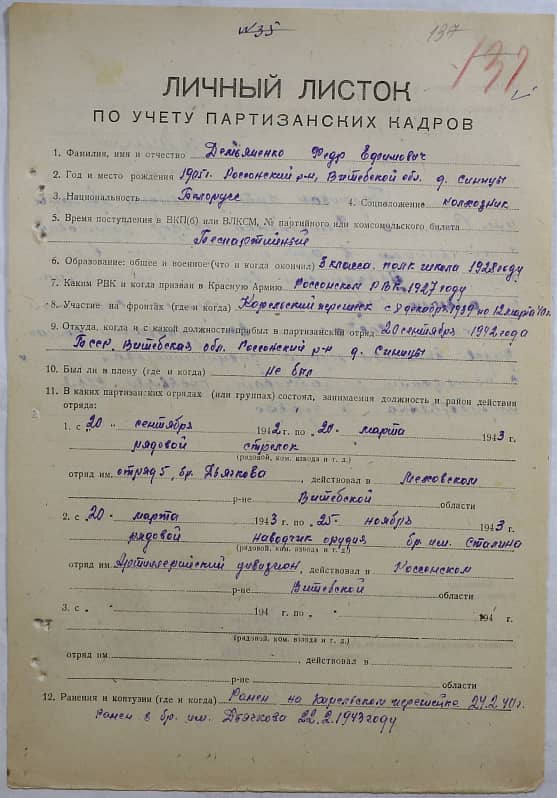 №35
137
137
ЛИЧНЫЙ ЛИСТОК
ПО УЧЕТУ ПАРТИЗАНСКИХ КАДРОВ
1. Фамилия, имя и отчество Демьяненко Федр Ефимович
2. Год и место рождения 1905г. Россонский р-н, Витебской обл. д. Синицы
3. Национальность Белорусс 4. Соцположение колхозник
5. Время поступления в ВКП(б) или ВЛКСМ, № партийного или комсомольского билета
Беспартийный
6. Образование: общее и военное (что и когда окончил) 3 класса. полк школа 1928 году
7. Каким РВК и когда призван в Красную Армию Россонском РВК. 1927 году
8. Участие на фронтах (где и когда) Карельский перешеек с 8 декабр. 1939 по 12 марта 40 г.
9. Откуда, когда и с какой должности прибыл в партизанский отряд 20 сентября 1942 года
БССР Витебская обл. Россонский р-н д. Синицы
10. Был ли в плену (где и когда) не был
11. В каких партизанских отрядах (или группах) состоял, занимаемая должность и район действия
отряда:
1. с 20 " сентября 1942 г. по 20 " марта 1943 г.
рядовой стрелок
(рядовой, ком. взвода и т. д.)
отряд им. отряд 5, бр. Дьячкова, действовал в
р-не Витебской области
2. с 20 " марта 1943 г. по 25 " ноябрь 1943 г.
рядовой наводчик орудия бр. им. Сталина
(рядовой, ком. взвода и т. д.)
отряд им. Артиллерийский дивизион, действовал в Россонском
р-не Витебской области
3. с 194 г. по 194 г.
(рядовой, ком. взвода и т. д.)
отряд им. , действовал в
р-не области
12. Ранения и контузии (где и когда) Ранен на Карельском перешейке 24.2.40г.
Ранен в бр. им. Дьячкова 22.2.1943 году